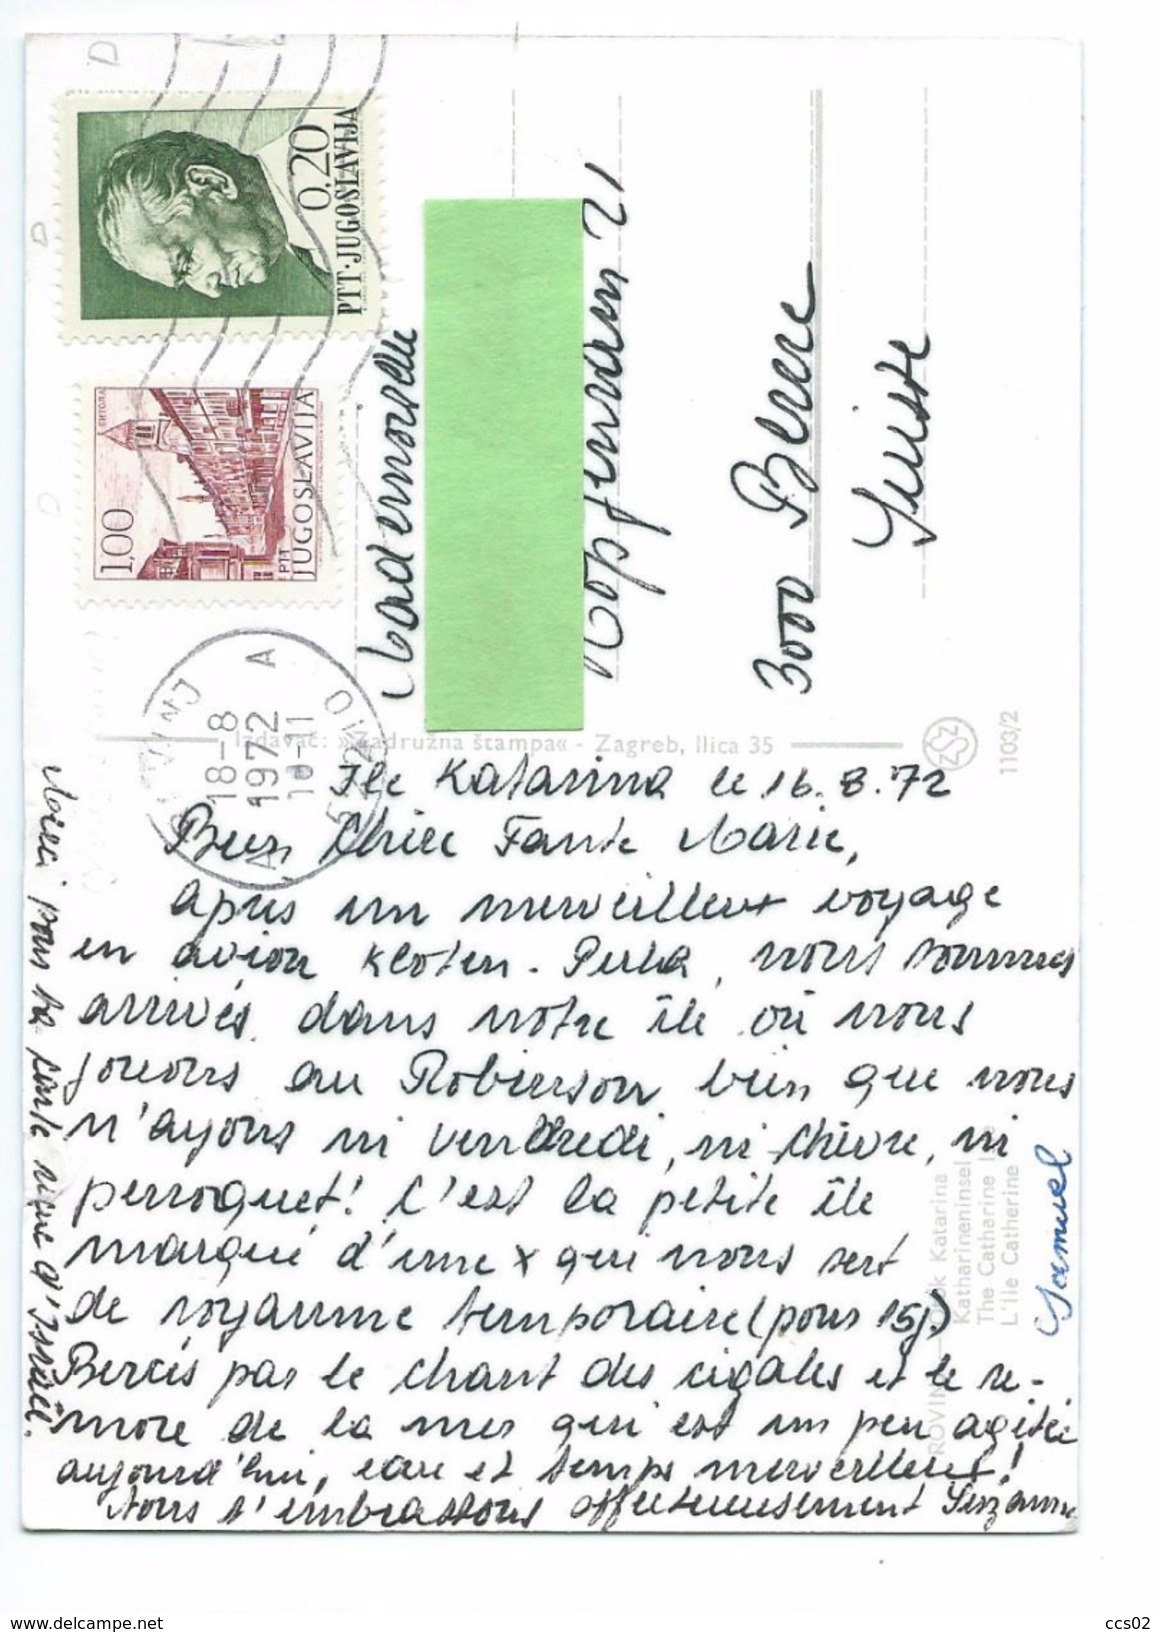 0,20
PTT·JUGOSLAVIJA
БИТОЛА
1,00
PTT
JUGOSLAVIJA
18-8
1972
10-11
A
A
Mademoiselle
21
3000 Berne
Suisse
Izdavač: »Zadružna štampa« - Zagreb, Ilica 35
ZŠZ
1103/2
Ile Katarina le 16.8.72
Bien Chère Tante Marie,
Après un merveilleux voyage
en avion Kloten - Pula, nous sommes
arrivés dans notre île où nous
jouons au Robinson bien que nous
n'ayons ni vendredi, ni chèvre, ni
perroquet! C'est la petite île
marqué d'une x qui nous sert
de royaume temporaire (pour 15j)
Bercés par le chant des cigales et le re-
more de la mer qui est un peu agitée
aujourd'hui, eau et temps merveilleux!
Nous t'embrassons affectueusement Suzanne
Samuel
Merci pour ta carte reçue d'Israël.
ROVINJ - Otok Katarina
Katharineninsel
The Catharine
L'Ile Catherine
ccs02